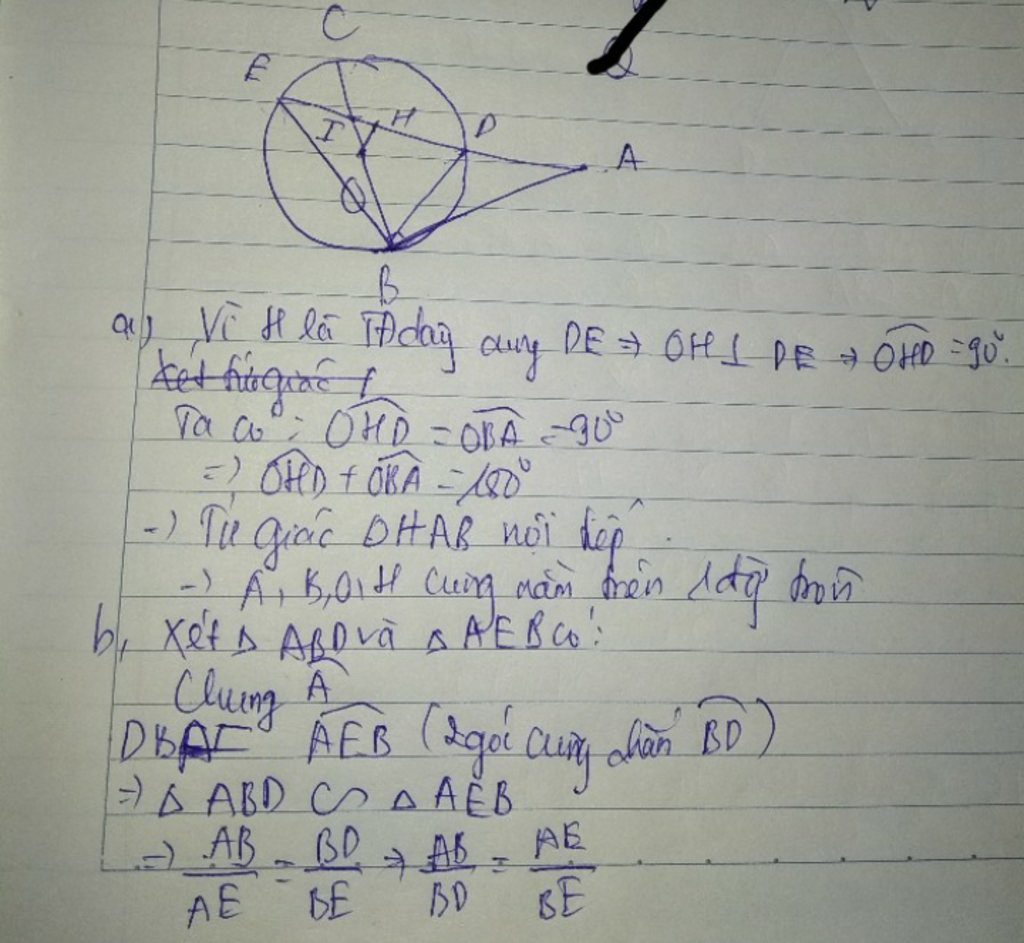 C
E
I H D
A
O
B
a) Vì H là TĐ dây cung DE ⇒ OH ⊥ DE ⇒ OHD = 90°.
Xét tứ giác
Ta có : OHD = OBA = 90°
⇒ OHD + OBA = 180°
⇒ Tứ giác OHAB nội tiếp.
⇒ A, B, O, H cùng nằm trên 1 đg tròn
b, Xét Δ ABD và Δ AEB có:
Chung A
DBA = AEB (2 góc cùng chắn BD)
⇒ Δ ABD ∽ Δ AEB
⇒ AB/AE = BD/BE ⇒ AB/BD = AE/BE